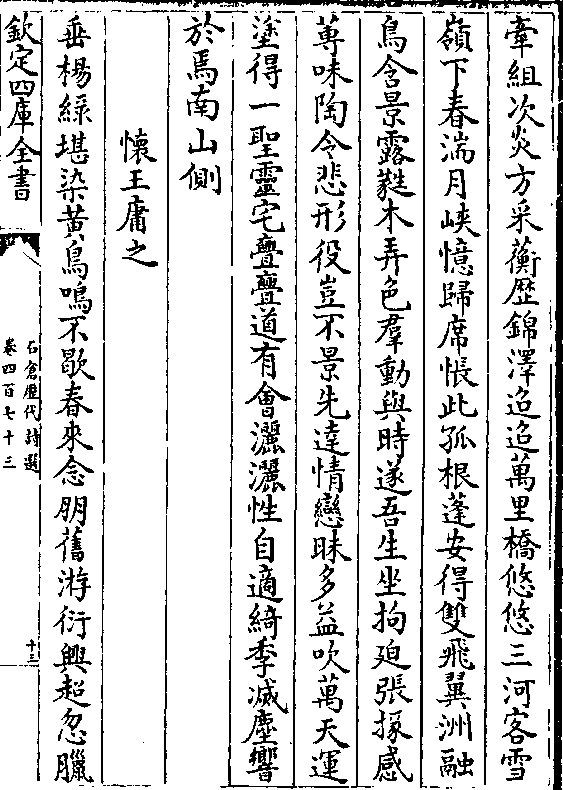 牽組次炎方采蘅歷錦澤迢迢萬里橋悠悠三河客雪
嶺下春湍月峽憶歸席悵此孤根蓬安得雙飛翼洲融
鳥含景露甤木弄色羣動與時遂吾生坐拘廹張掾感
蓴味陶令悲形役豈不景先達情戀昧多益吹萬天運
塗得一聖靈宅亹亹道有會灑灑性自適綺季滅塵響
於焉南山側
懷王庸之
垂楊綠堪染黃鳥鳴不歇春來念朋舊游衍興超忽臘
欽定四庫全書
石倉歷代詩選
卷四百七十三
十三